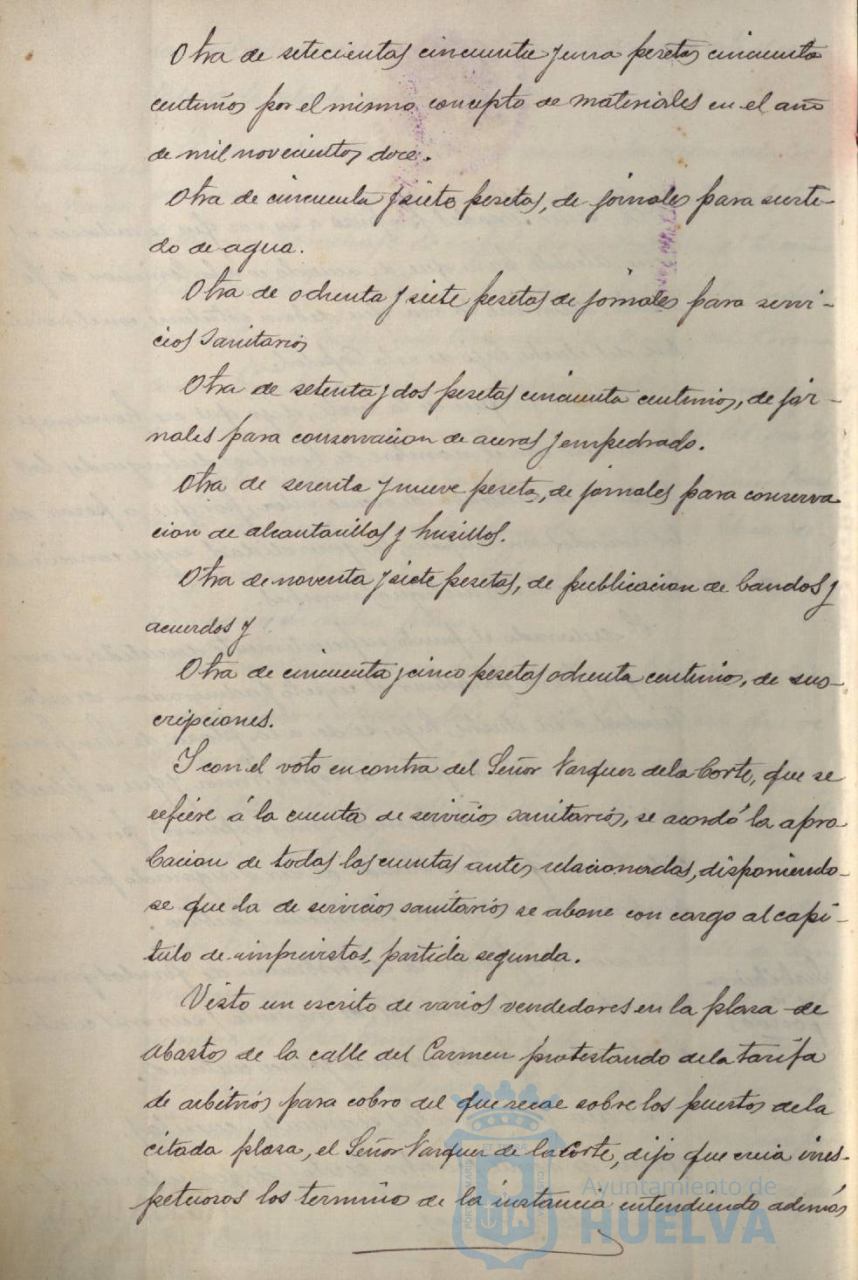 Otra de setecientas cincuenta y una pesetas cincuenta
centimos por el mismo concepto de materiales en el año
de mil novecientos doce.
Otra de cincuenta y siete pesetas, de jornales para surti-
do de agua.
Otra de ochenta y siete pesetas de jornales para servi-
cios sanitarios
Otra de setenta y dos pesetas cincuenta centimos, de jor-
nales para conservacion de aceras y empedrado.
Otra de sesenta y nueve pesetas, de jornales para conserva
cion de alcantarillas y husillos.
Otra de noventa y siete pesetas, de publicacion de bandos y
acuerdos y
Otra de cincuenta y cinco pesetas ochenta centimos, de sus-
cripciones.
Y con el voto en contra del Señor Vazquez de la Corte, que se
refiere á la cuenta de servicios sanitarios, se acordó la apro
bacion de todas las cuentas antes relacionadas, disponiendo-
se que la de servicios sanitarios se abone con cargo al capi-
tulo de imprevistos, partida segunda.
Visto un escrito de varios vendedores en la plaza de
Abastos de la calle del Carmen protestando de la tarifa
de arbitrios para cobro del que recae sobre los puestos de la
citada plaza, el Señor Vazquez de la Corte, dijo que creia irres-
petuosos los terminos de la instancia entendiendo además
Ayuntamiento de
HUELVA